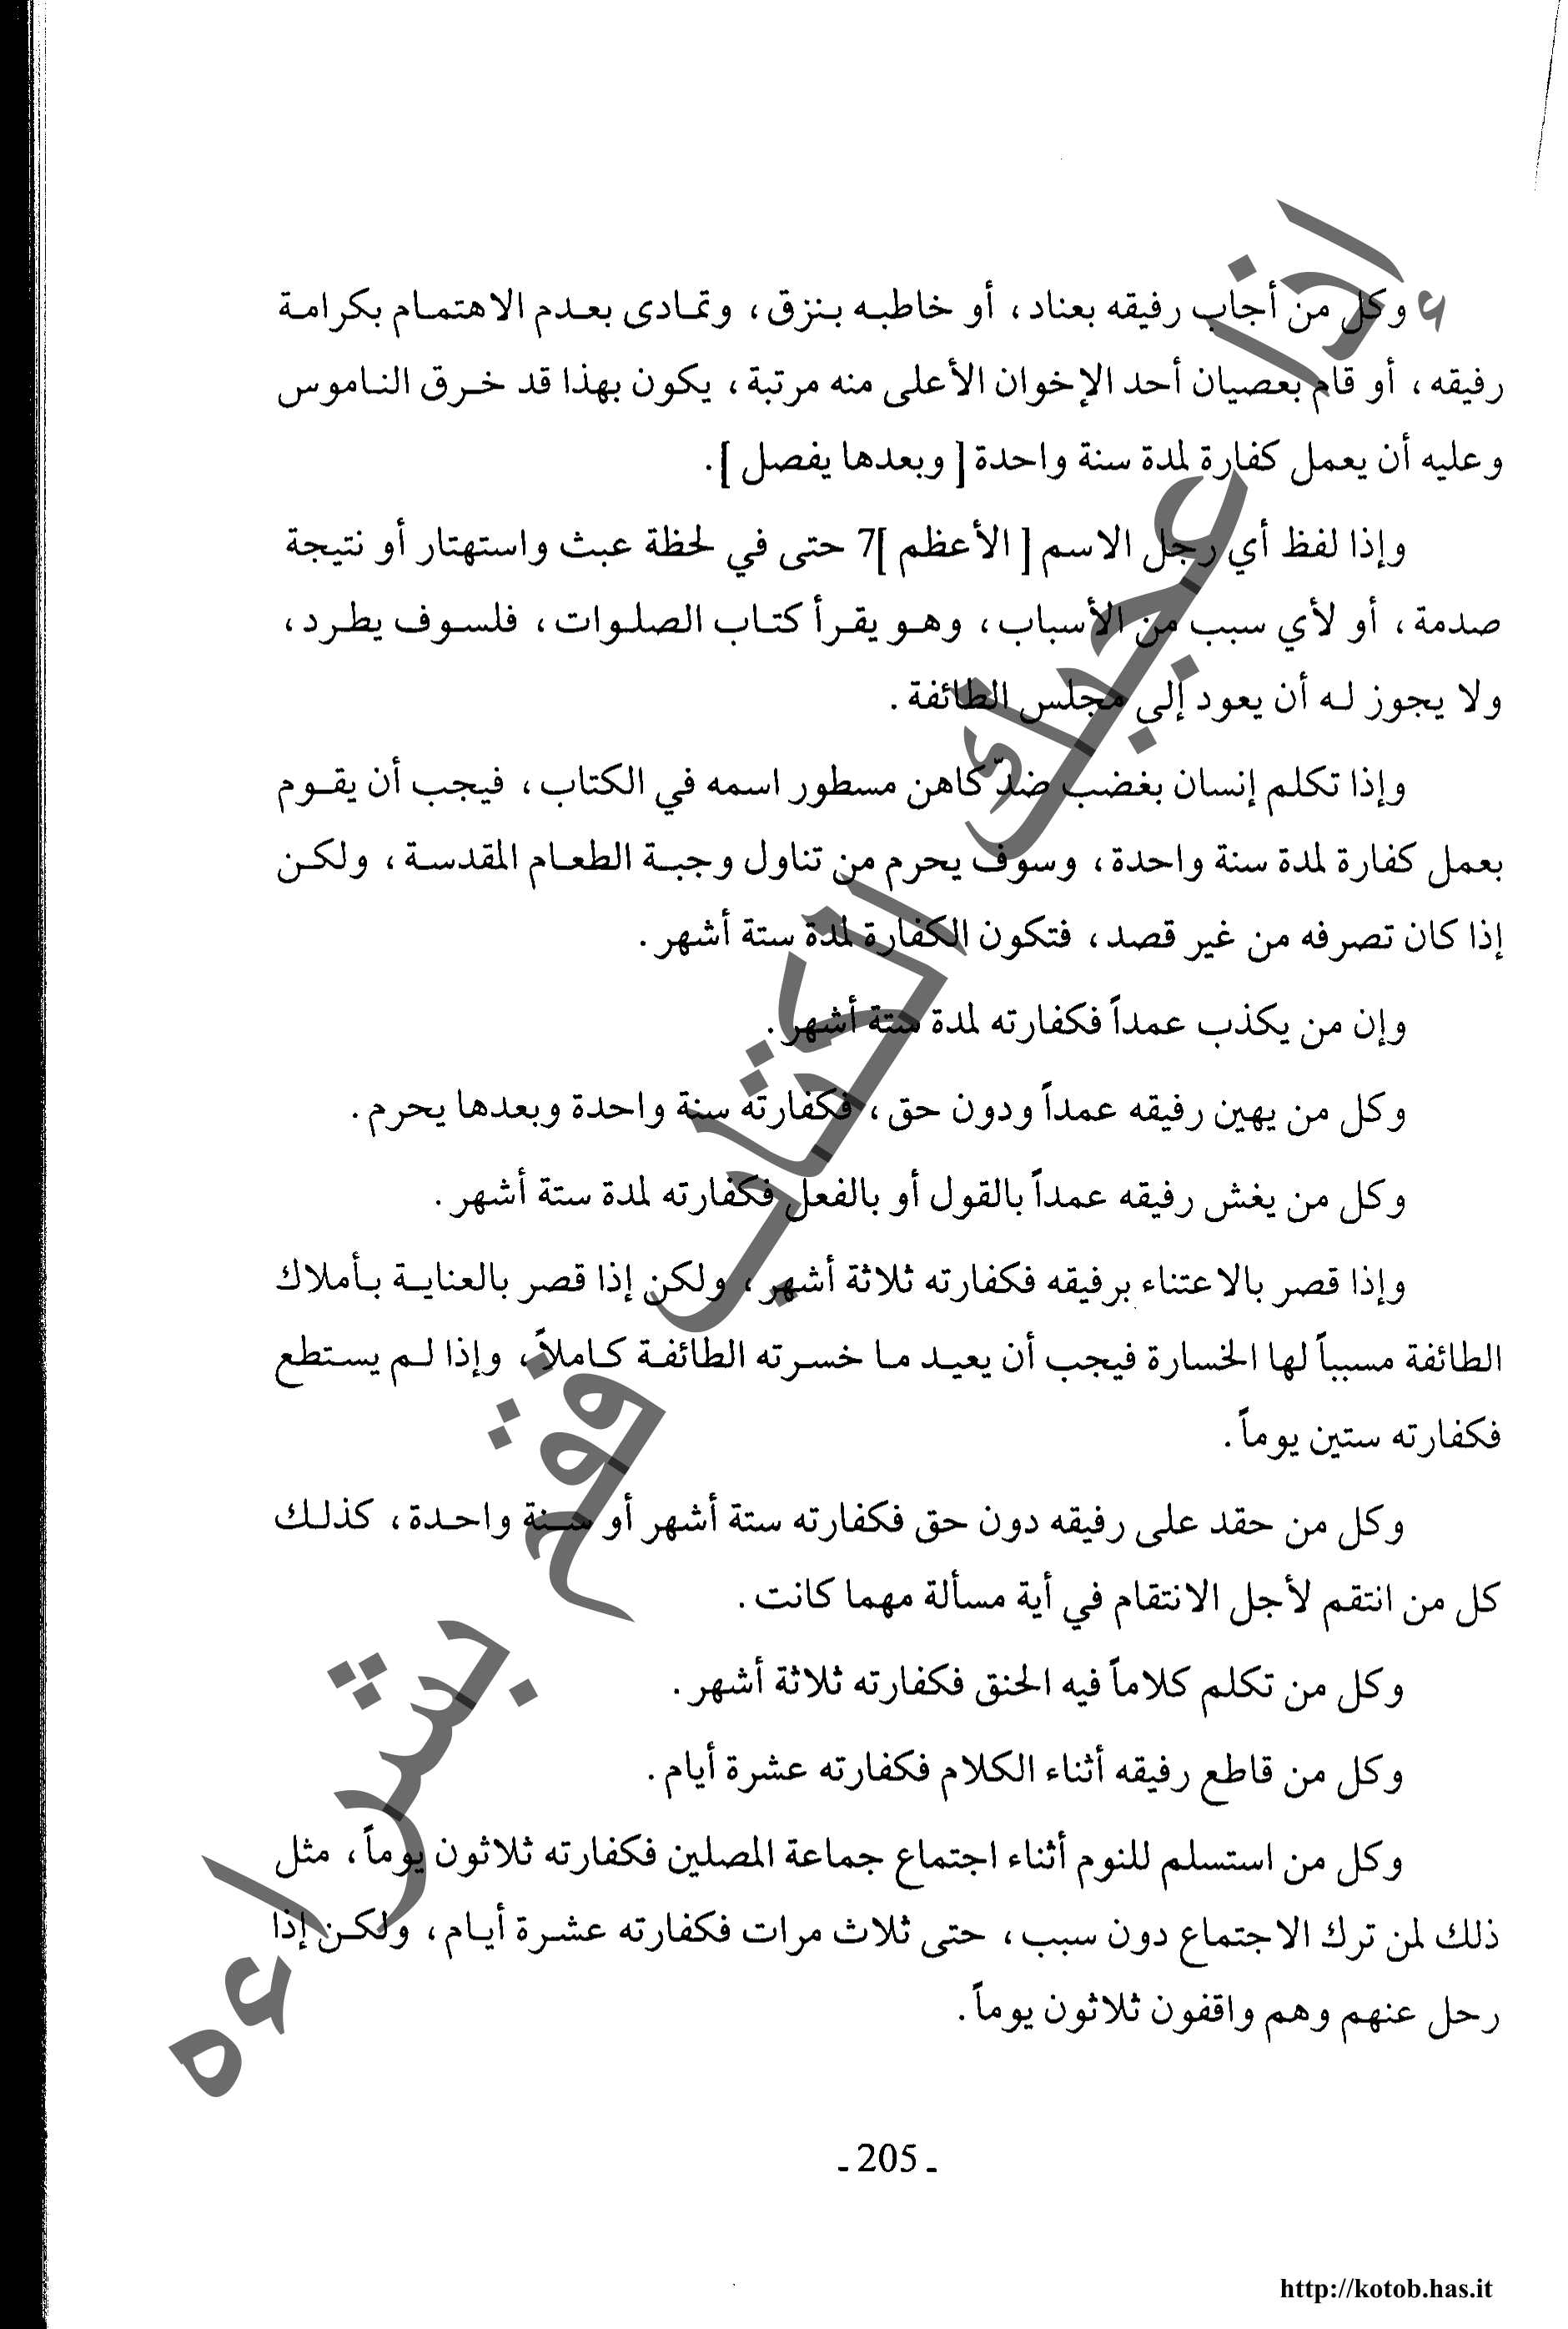 وكل من أجاب رفيقه بعناد، أو خاطبه بنزق، وتمادى بعدم الاهتمام بكرامة
رفيقه، أو قام بعصيان أحد الإخوان الأعلى منه مرتبة، يكون بهذا قد خرق الناموس
وعليه أن يعمل كفارة لمدة سنة واحدة [ وبعدها يفصل ].
وإذا لفظ أي رجل الاسم [ الأعظم ]7 حتى في لحظة عبث واستهتار أو نتيجة
صدمة، أو لأي سبب من الأسباب، وهو يقرأ كتاب الصلوات، فلسوف يطرد،
ولا يجوز له أن يعود إلى مجلس الطائفة.
وإذا تكلم إنسان بغضب ضدّ كاهن مسطور اسمه في الكتاب، فيجب أن يقوم
بعمل كفارة لمدة سنة واحدة، وسوف يحرم من تناول وجبة الطعام المقدسة، ولكن
إذا كان تصرفه من غير قصد، فتكون الكفارة لمدة ستة أشهر.
وإن من يكذب عمداً فكفارته لمدة ستة أشهر.
وكل من يهين رفيقه عمداً ودون حق، فكفارته سنة واحدة وبعدها يحرم.
وكل من يغش رفيقه عمداً بالقول أو بالفعل فكفارته لمدة ستة أشهر.
وإذا قصر بالاعتناء برفيقه فكفارته ثلاثة أشهر، ولكن إذا قصر بالعناية بأملاك
الطائفة مسبباً لها الخسارة فيجب أن يعيد ما خسرته الطائفة كاملاً، وإذا لم يستطع
فكفارته ستين يوماً.
وكل من حقد على رفيقه دون حق فكفارته ستة أشهر أو سنة واحدة، كذلك
كل من انتقم لأجل الانتقام في أية مسألة مهما كانت.
وكل من تكلم كلاماً فيه الحنق فكفارته ثلاثة أشهر.
وكل من قاطع رفيقه أثناء الكلام فكفارته عشرة أيام.
وكل من استسلم للنوم أثناء اجتماع جماعة المصلين فكفارته ثلاثون يوماً، مثل
ذلك لمن ترك الاجتماع دون سبب، حتى ثلاث مرات فكفارته عشرة أيام، ولكن إذا
رحل عنهم وهم واقفون ثلاثون يوماً.
- 205 -
http://kotob.has.it
إذا أعجبك الكتاب فقم بشراءه